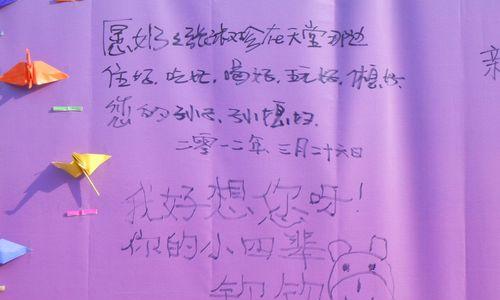 愿奶奶张淑珍在天堂那边
住好.吃好.喝好.玩好.
您的孙子.孙媳妇.
二零一二年三月二十六日
我好想您呀!
你的小四辈
钧钧
亲